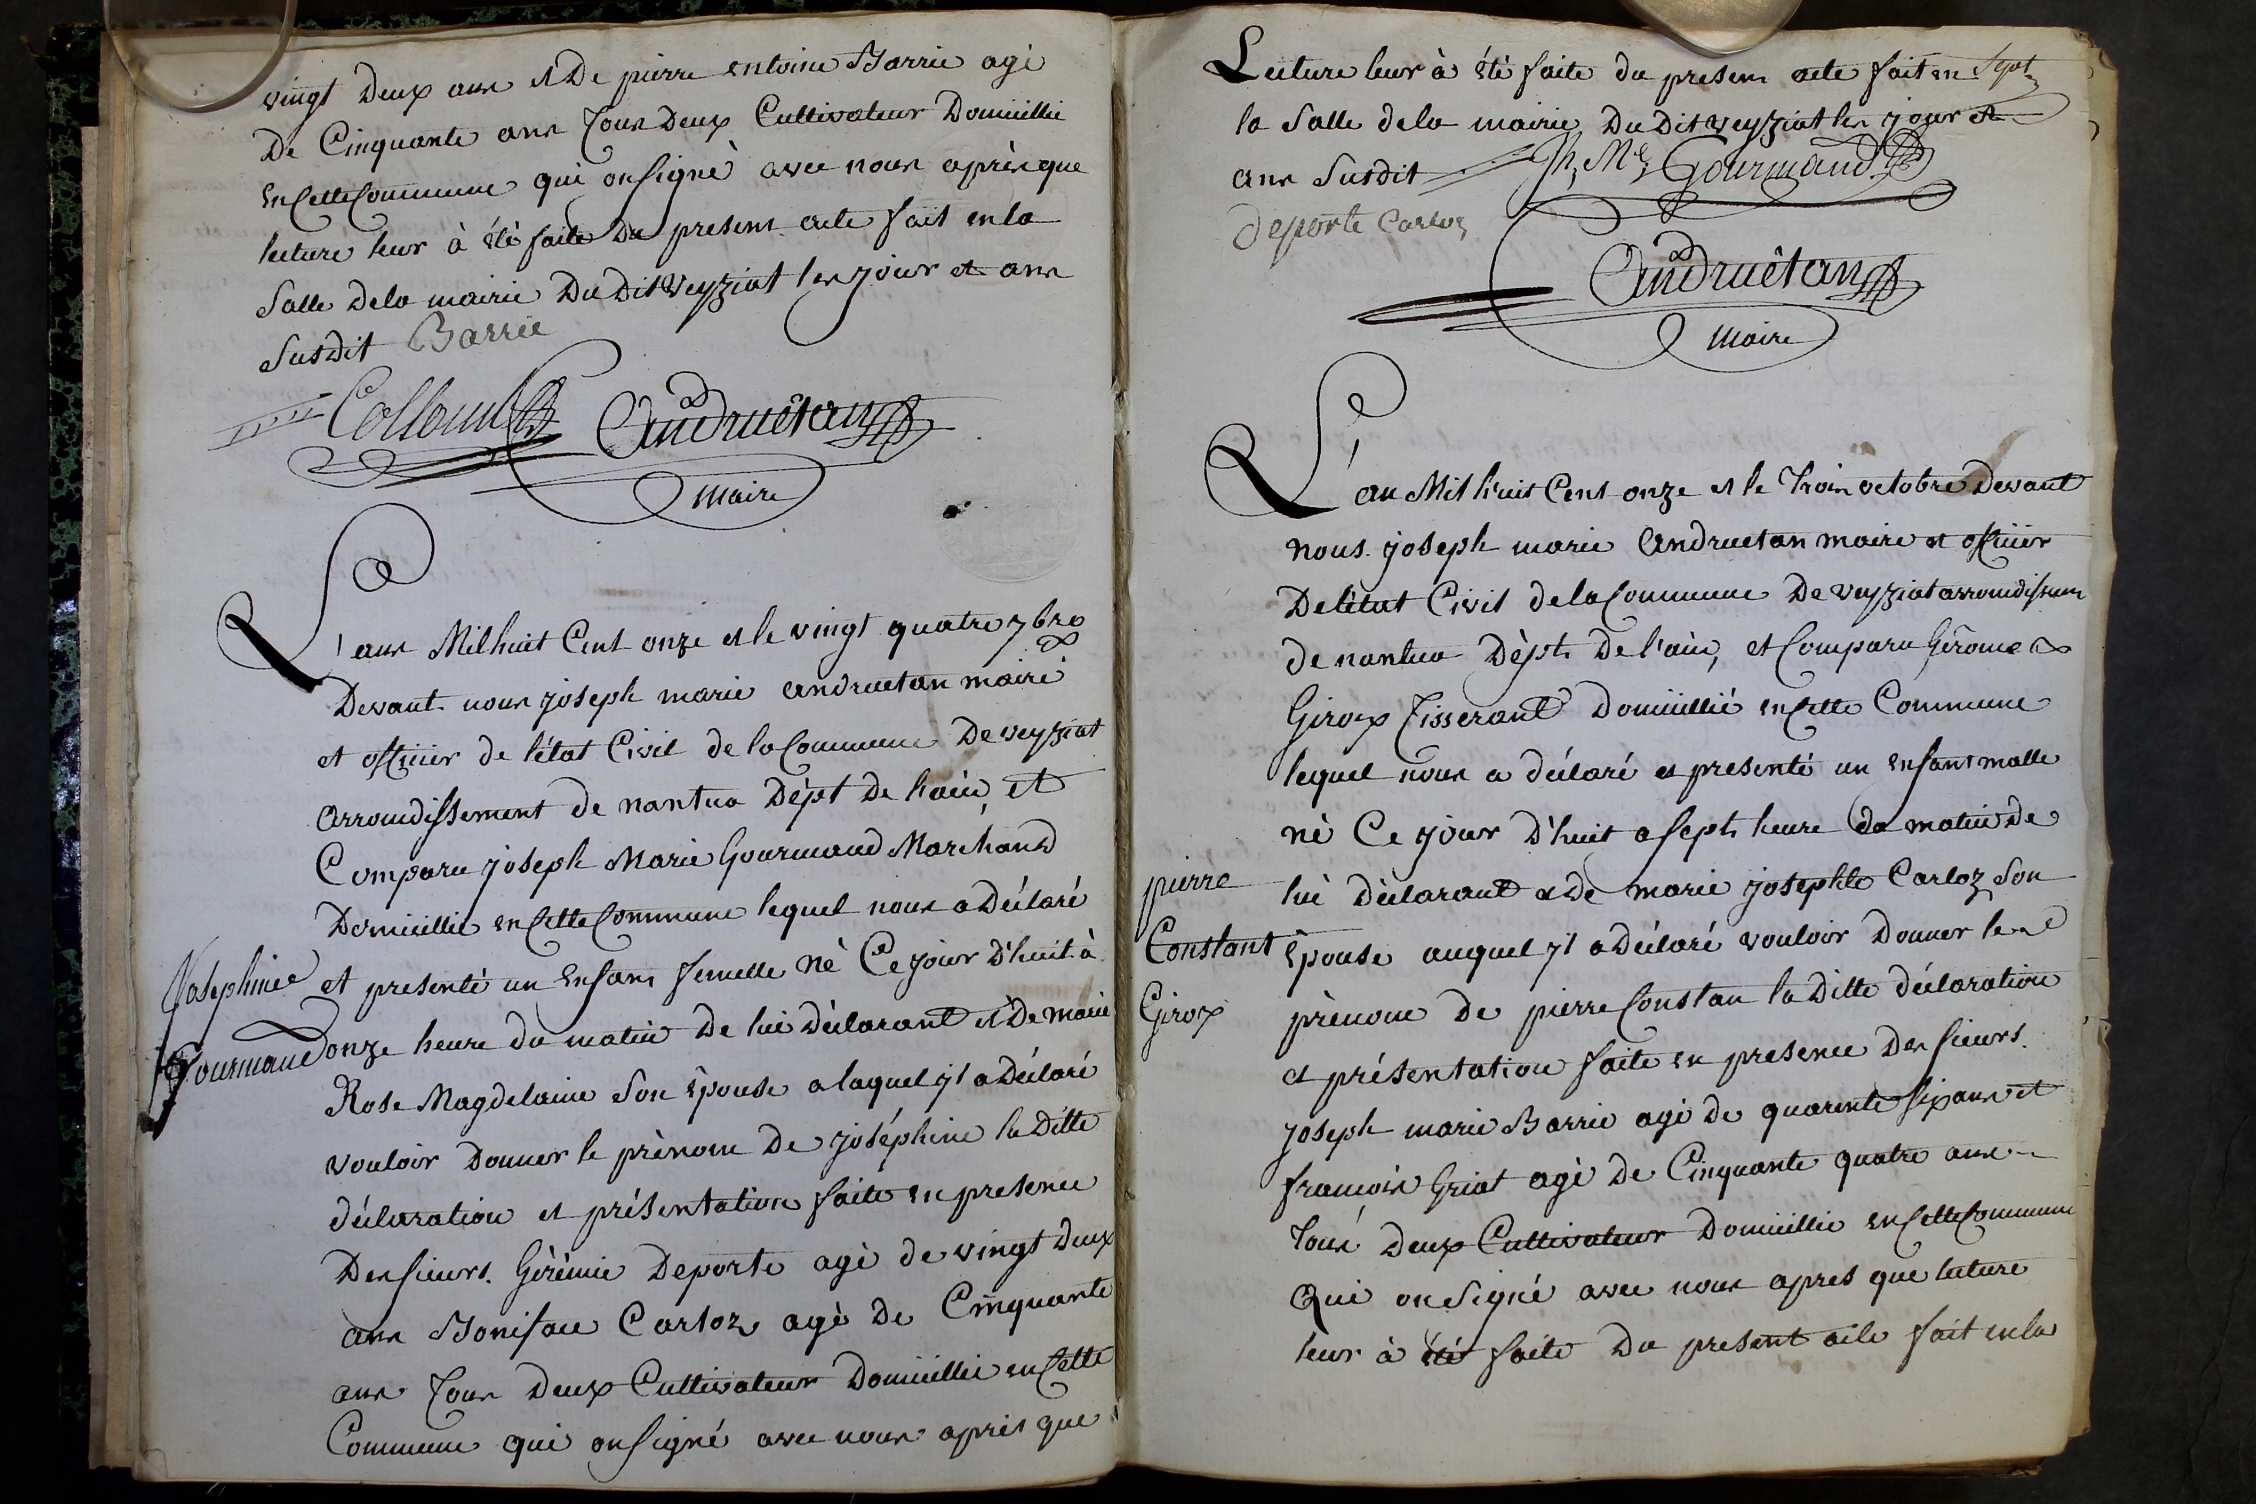 vingt Deux ans et De pierre entoine Barrie agé
De Cinquante ans Tous Deux Cultivateur Domicillié
en Cette Commune qui on Signé avec nous après que
lecture leur à été faite Du present acte fait en la
Salle De la mairie Du Dit Veyziat les jour et ans
Susdit Barrie
Collomb Andruétan
maire
L'ans Mil huit Cent onze et le vingt quatre 7bre
Devant nous joseph marie andruetan maire
et officier de l'état Civil de la Commune De veyziat
arrondissement de nantua Dépt De l'ain, et
Comparu joseph Marie Gourmand Marchand
Domicillié en Cette Commune lequel nous a Déclaré
et presenté un Enfans femelle né Ce jour D'huit à
onze heure du matin De lui Déclarant et De marie
Rose Magdelaine Son épouse a laquel yl a Déclaré
vouloir Donner le prénom De joséphine la Ditte
déclaration et présentation faite en presence
Des Sieurs. Gérémie Deporte agé de vingt Deux
ans Boniface Carloz agé De Cinquante
ans Tous Deux Cultivateur Domicillié en Cette
Commune qui on Signé avec nous après que
Josephine
Gourmand
Lecture leur à été faite du presens acte fait en Sept
la Salle de la mairie Du Dit veyziat les jour et
ans Susdit Jh Mie Gourmand
deporte Carloz
Andruétan
maire
L'an Mil huit Cent onze et le Trois octobre Devant
nous joseph marie Andruetan maire et officier
De l'état Civil de la Commune De veyziat arrondissem
de nantua Dépt De l'ain, et Comparu Gérome
Giroz Tisserant Domicillié en Cette Commune
lequel nous a déclaré et presenté un enfant malle
né Ce jour D'huit a Sept heure du matin de
lui Déclarant et De marie josephte Carloz Son
épouse auquel yl a Déclaré vouloir Donner le
prénom De pierre Constan la Ditte déclaration
et présentation faite en presence Des Sieurs.
joseph marie Barrie agé de quarente Six ans et
francois Griat agé De Cinquante quatre ans
Tous Deux Cultivateur Domicillié en Cette Commune
Qui on Signé avec nous apres que lecture
leur à été faite Du present acte fait en la
pierre
Constant
Giroz